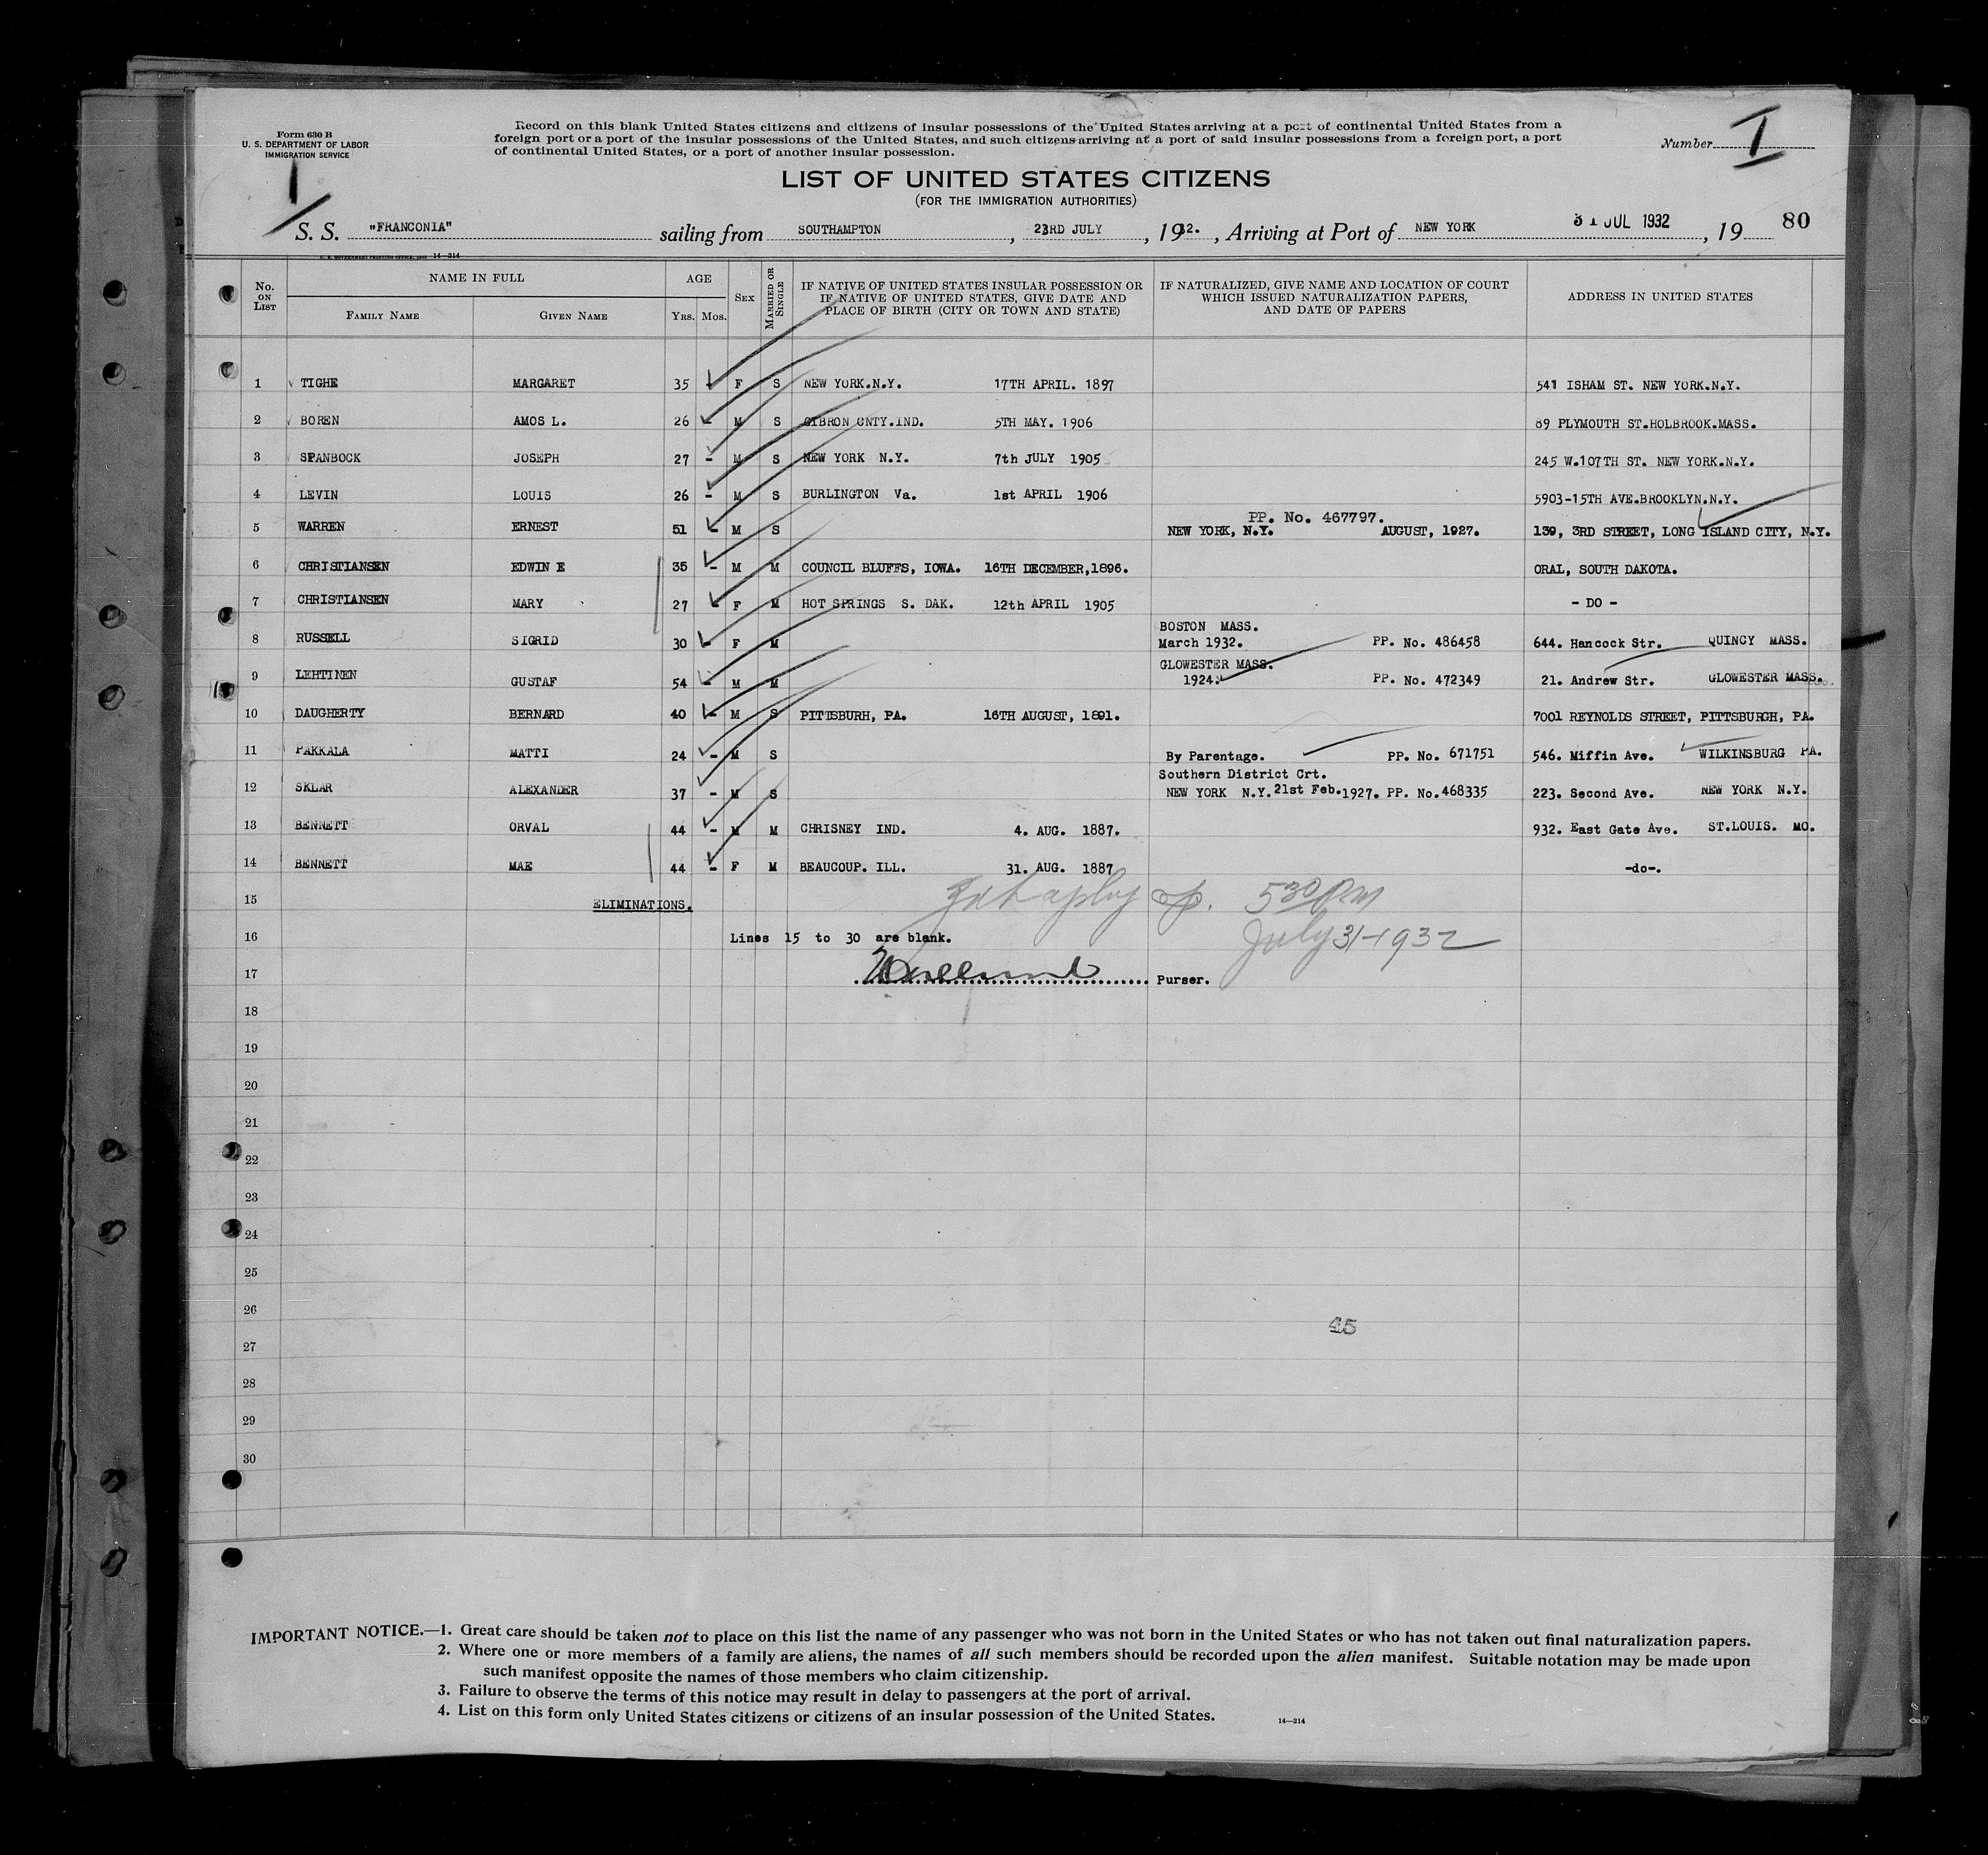 Form 630 B
U. S. DEPARTMENT OF LABOR
IMMIGRATION SERVICE
Record on this blank United States citizens and citizens of insular possessions of the United States arriving at a port of continental United States from a
foreign port or a port of the insular possessions of the United States, and such citizens arriving at a port of said insular possessions from a foreign port, a port
of continental United States, or a port of another insular possession.
Number I
LIST OF UNITED STATES CITIZENS
(FOR THE IMMIGRATION AUTHORITIES)
1
S. S. "FRANCONIA" sailing from SOUTHAMPTON, 23RD JULY, 1932., Arriving at Port of NEW YORK 31 JUL 1932, 19 80
14—214
No. ON LIST NAME IN FULL AGE SEX MARRIED OR SINGLE IF NATIVE OF UNITED STATES INSULAR POSSESSION OR IF NATIVE OF UNITED STATES, GIVE DATE AND PLACE OF BIRTH (CITY OR TOWN AND STATE) IF NATURALIZED, GIVE NAME AND LOCATION OF COURT WHICH ISSUED NATURALIZATION PAPERS, AND DATE OF PAPERS ADDRESS IN UNITED STATES
FAMILY NAME GIVEN NAME YRS. MOS.
1 TIGHE MARGARET 35 - F S NEW YORK.N.Y. 17TH APRIL. 1897 541 ISHAM ST. NEW YORK.N.Y.
2 BOREN AMOS L. 26 - M S GIBRON CNTY.IND. 5TH MAY. 1906 89 PLYMOUTH ST.HOLBROOK.MASS.
3 SPANBOCK JOSEPH 27 - M S NEW YORK N.Y. 7th JULY 1905 245 W.107TH ST. NEW YORK.N.Y.
4 LEVIN LOUIS 26 - M S BURLINGTON Va. 1st APRIL 1906 5903-15TH AVE.BROOKLYN.N.Y.
PP. No. 467797.
5 WARREN ERNEST 51 - M S NEW YORK, N.Y. AUGUST, 1927. 139, 3RD STREET, LONG ISLAND CITY, N.Y.
6 CHRISTIANSEN EDWIN E 35 - M M COUNCIL BLUFFS, IOWA. 16TH DECEMBER,1896. ORAL, SOUTH DAKOTA.
7 CHRISTIANSEN MARY 27 - F M HOT SPRINGS S. DAK. 12th APRIL 1905 - DO -
BOSTON MASS.
8 RUSSELL SIGRID 30 - F M March 1932. PP. No. 486458 644. Hancock Str. QUINCY MASS.
GLOWESTER MASS.
9 LEHTINEN GUSTAF 54 - M M 1924. PP. No. 472349 21. Andrew Str. GLOWESTER MASS.
10 DAUGHERTY BERNARD 40 - M S PITTSBURH, PA. 16TH AUGUST, 1891. 7001 REYNOLDS STREET, PITTSBURGH, PA.
11 PAKKALA MATTI 24 - M S By Parentage. PP. No. 671751 546. Miffin Ave. WILKINSBURG PA.
Southern District Crt.
12 SKLAR ALEXANDER 37 - M S NEW YORK N.Y. 21st Feb.1927. PP. No.468335 223. Second Ave. NEW YORK N.Y.
13 BENNETT ORVAL 44 - M M CHRISNEY IND. 4. AUG. 1887. 932. East Gate Ave. ST.LOUIS. MO.
14 BENNETT MAE 44 - F M BEAUCOUP. ILL. 31. AUG. 1887 -do-.
15 ELIMINATIONS. 530 PM
16 Lines 15 to 30 are blank. July 31-1932
17 Purser.
18
19
20
21
22
23
24
25
26
45
27
28
29
30
IMPORTANT NOTICE.—1. Great care should be taken not to place on this list the name of any passenger who was not born in the United States or who has not taken out final naturalization papers.
2. Where one or more members of a family are aliens, the names of all such members should be recorded upon the alien manifest. Suitable notation may be made upon
such manifest opposite the names of those members who claim citizenship.
3. Failure to observe the terms of this notice may result in delay to passengers at the port of arrival.
4. List on this form only United States citizens or citizens of an insular possession of the United States. 14—214